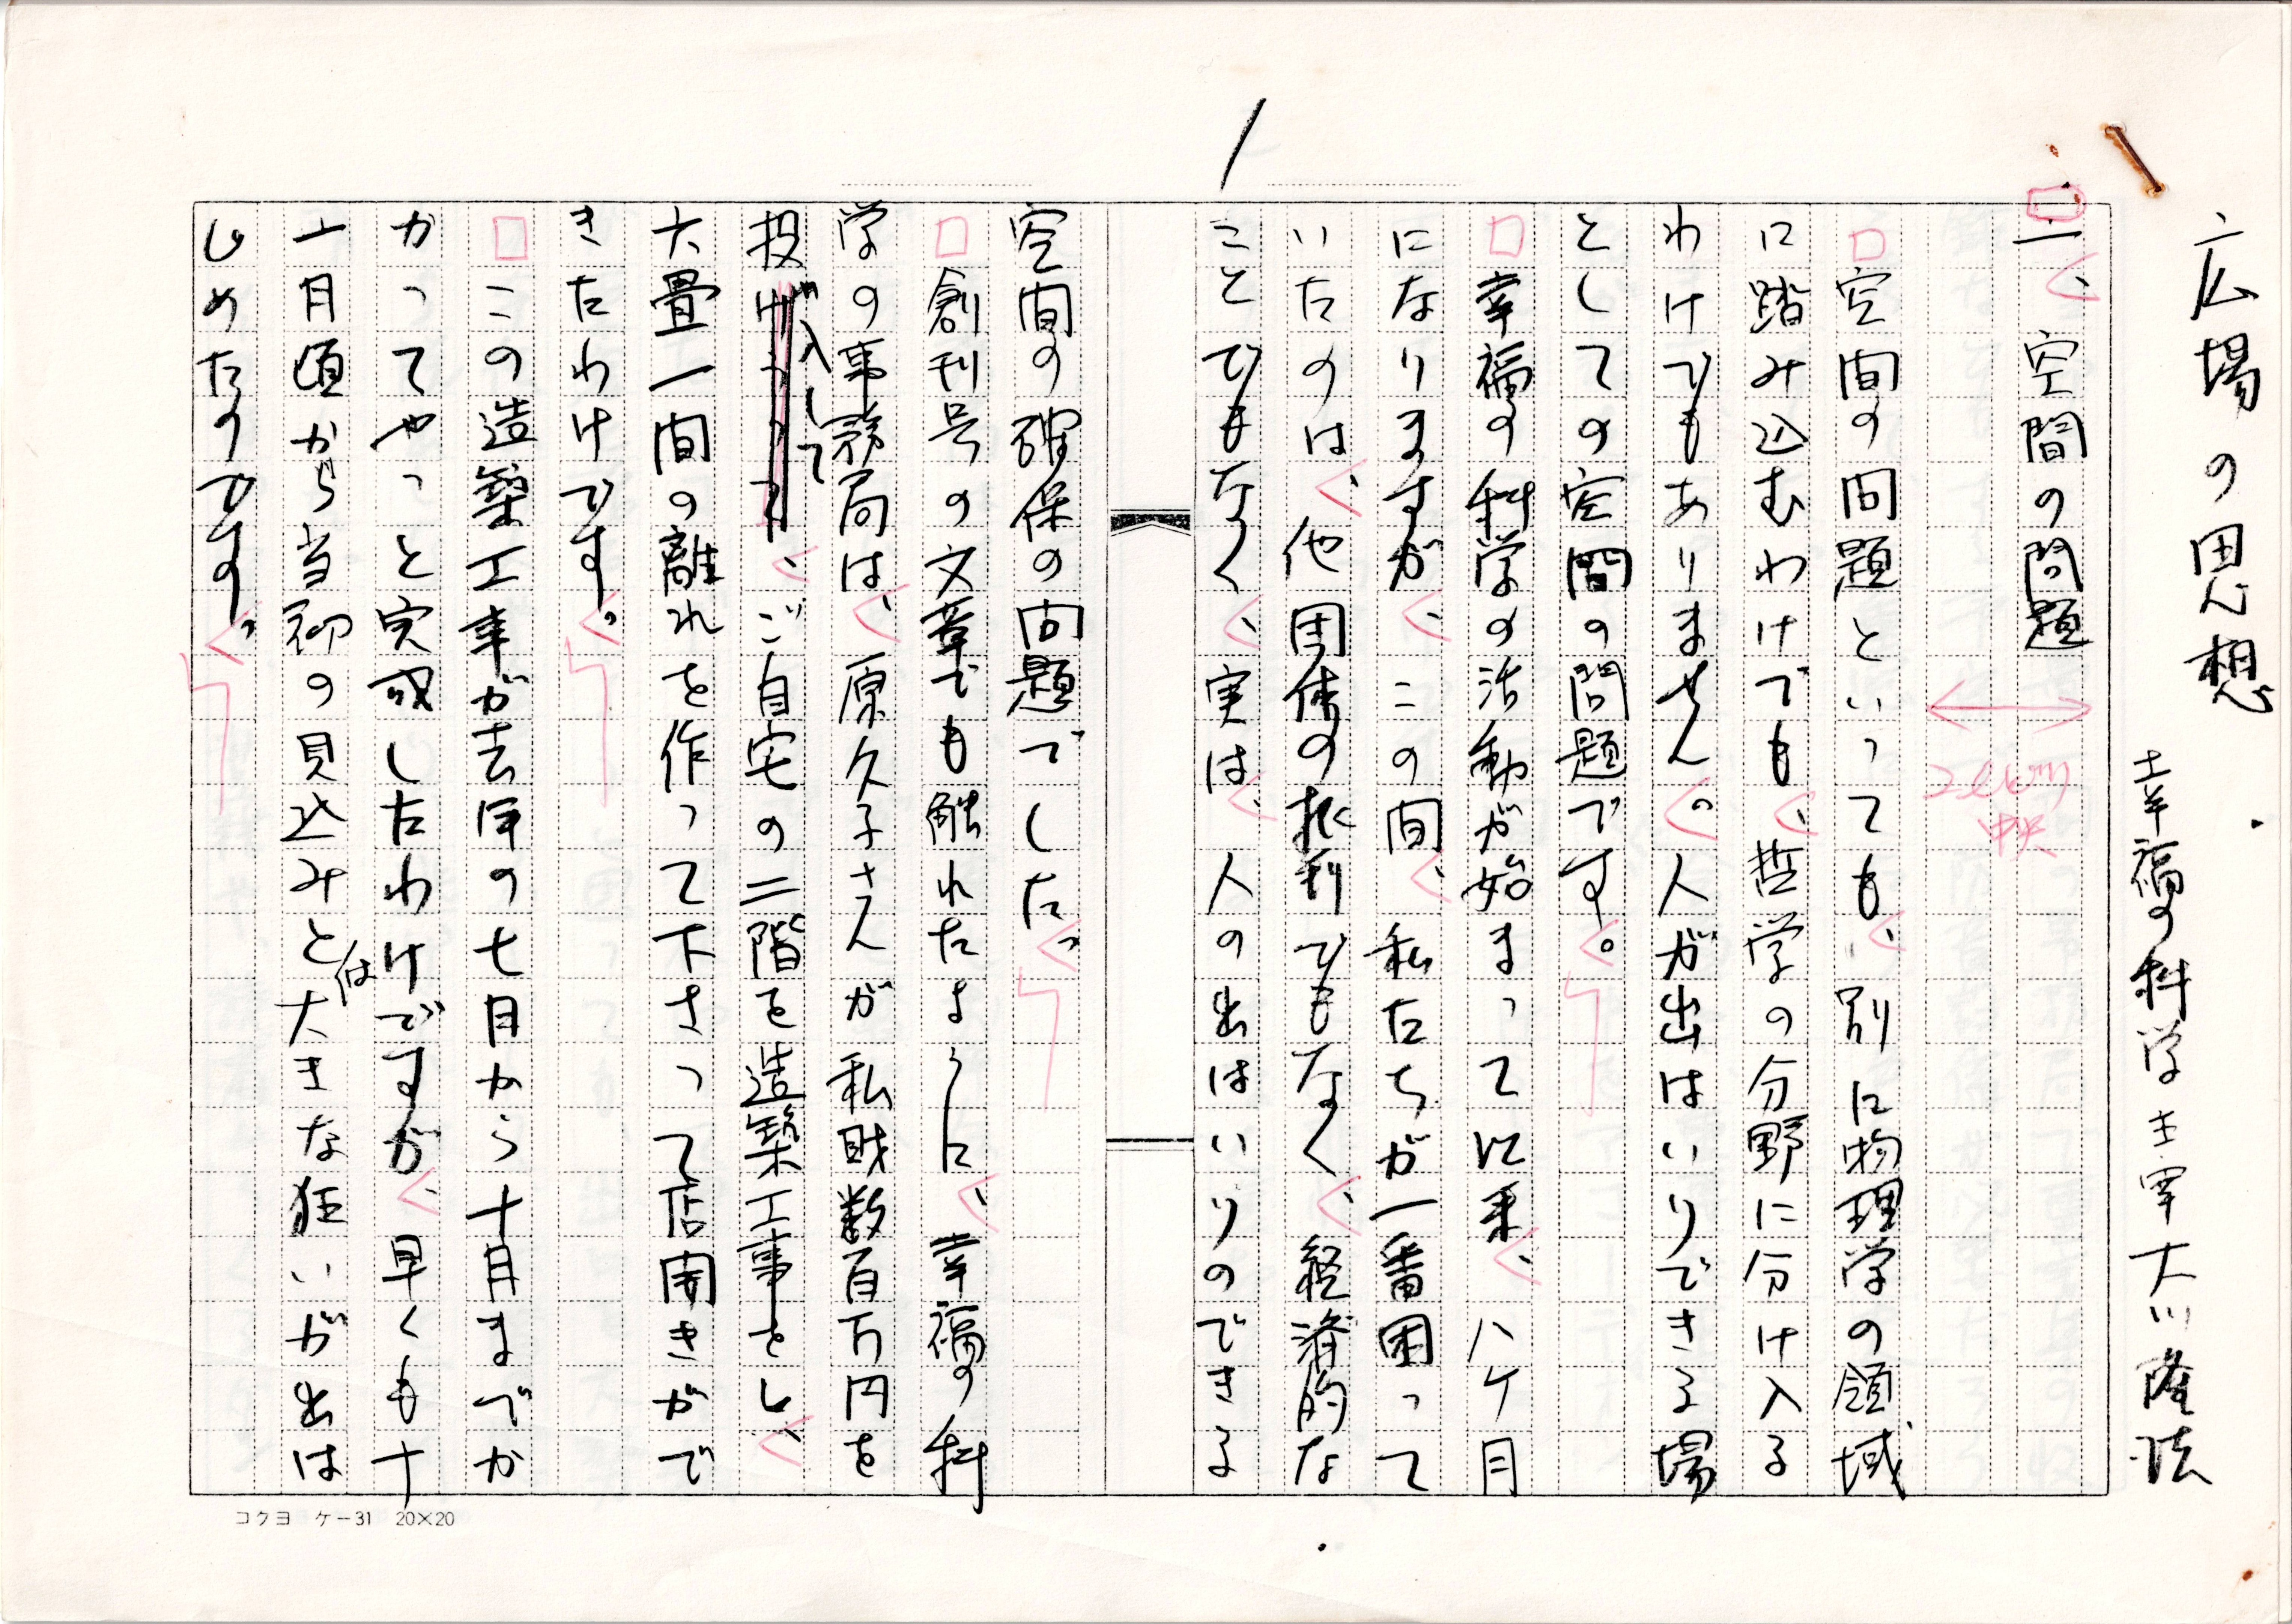 広場の思想
幸福の科学主宰大川隆法
1
一、空間の問題
2行中央
空間の問題といっても、別に物理学の領域
に踏み込むわけでも、哲学の分野に分け入る
わけでもありません。人が出はいりできる場
としての空間の問題です。
幸福の科学の活動が始まって以来、八ケ月
になりますが、この間、私たちが一番困って
いたのは、他団体の批判でもなく、経済的な
ことでもなく、実は、人の出はいりのできる
空間の確保の問題でした。
創刊号の文章でも触れたように、幸福の科
学の事務局は、原久子さんが私財数百万円を
投げ入して、ご自宅の二階を造築工事をし、
六畳一間の離れを作って下さって店開きがで
きたわけです。
この造築工事が去年の七月から十月までか
かってやっと完成したわけですが、早くも十
一月頃から当初の見込みとは大きな狂いが出は
じめたのです。
コクヨ ケー31 20×20